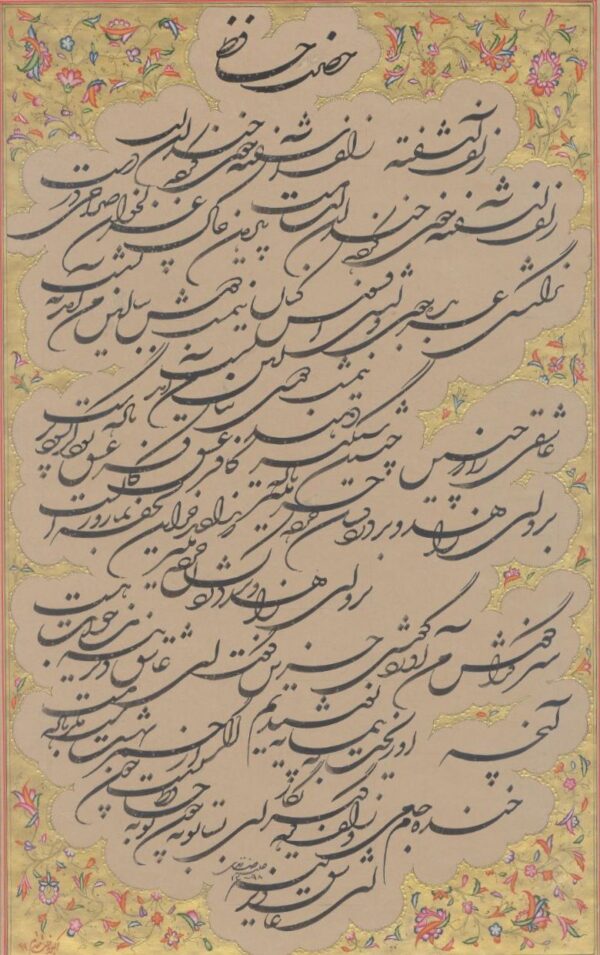 حضرت حافظ
زلف آشفته زلف آشفته خوی کرده خندان لب
زلف آشفته خوی کرده خندان لب مست پیرهن چاک غزلخوان صراحی در دست
نرگسش عربده جوی و لبش افسوس کنان نیمشب دوش ببالین من آمد بنشست
نیمشب دوش ببالین
عاشقی را چنین باده شبگیر دهند کافر عشق بود گر نبود باده پرست
برو ای زاهد و بر دردکشان خرده مگیر که ندادند جز این تحفه بما روز الست
برو ای زاهد و بر دردکشان خرده مگیر
سر فرا گوش من آورد حزین گفت ای عاشق دیرینه من خوابت هست
آنچه او ریخت به پیمانه ما نوشیدیم اگر از خمر بهشت است وگر باده مست
خنده جام می و زلف گره گیر نگار ای بسا توبه که چون توبه حافظ
ای عاشق دیرینه